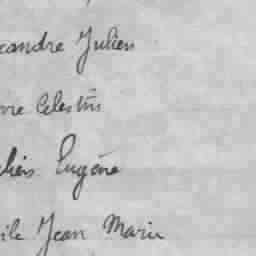 xandre Julien
rre Celestin
Eugène
ile Jean Marie